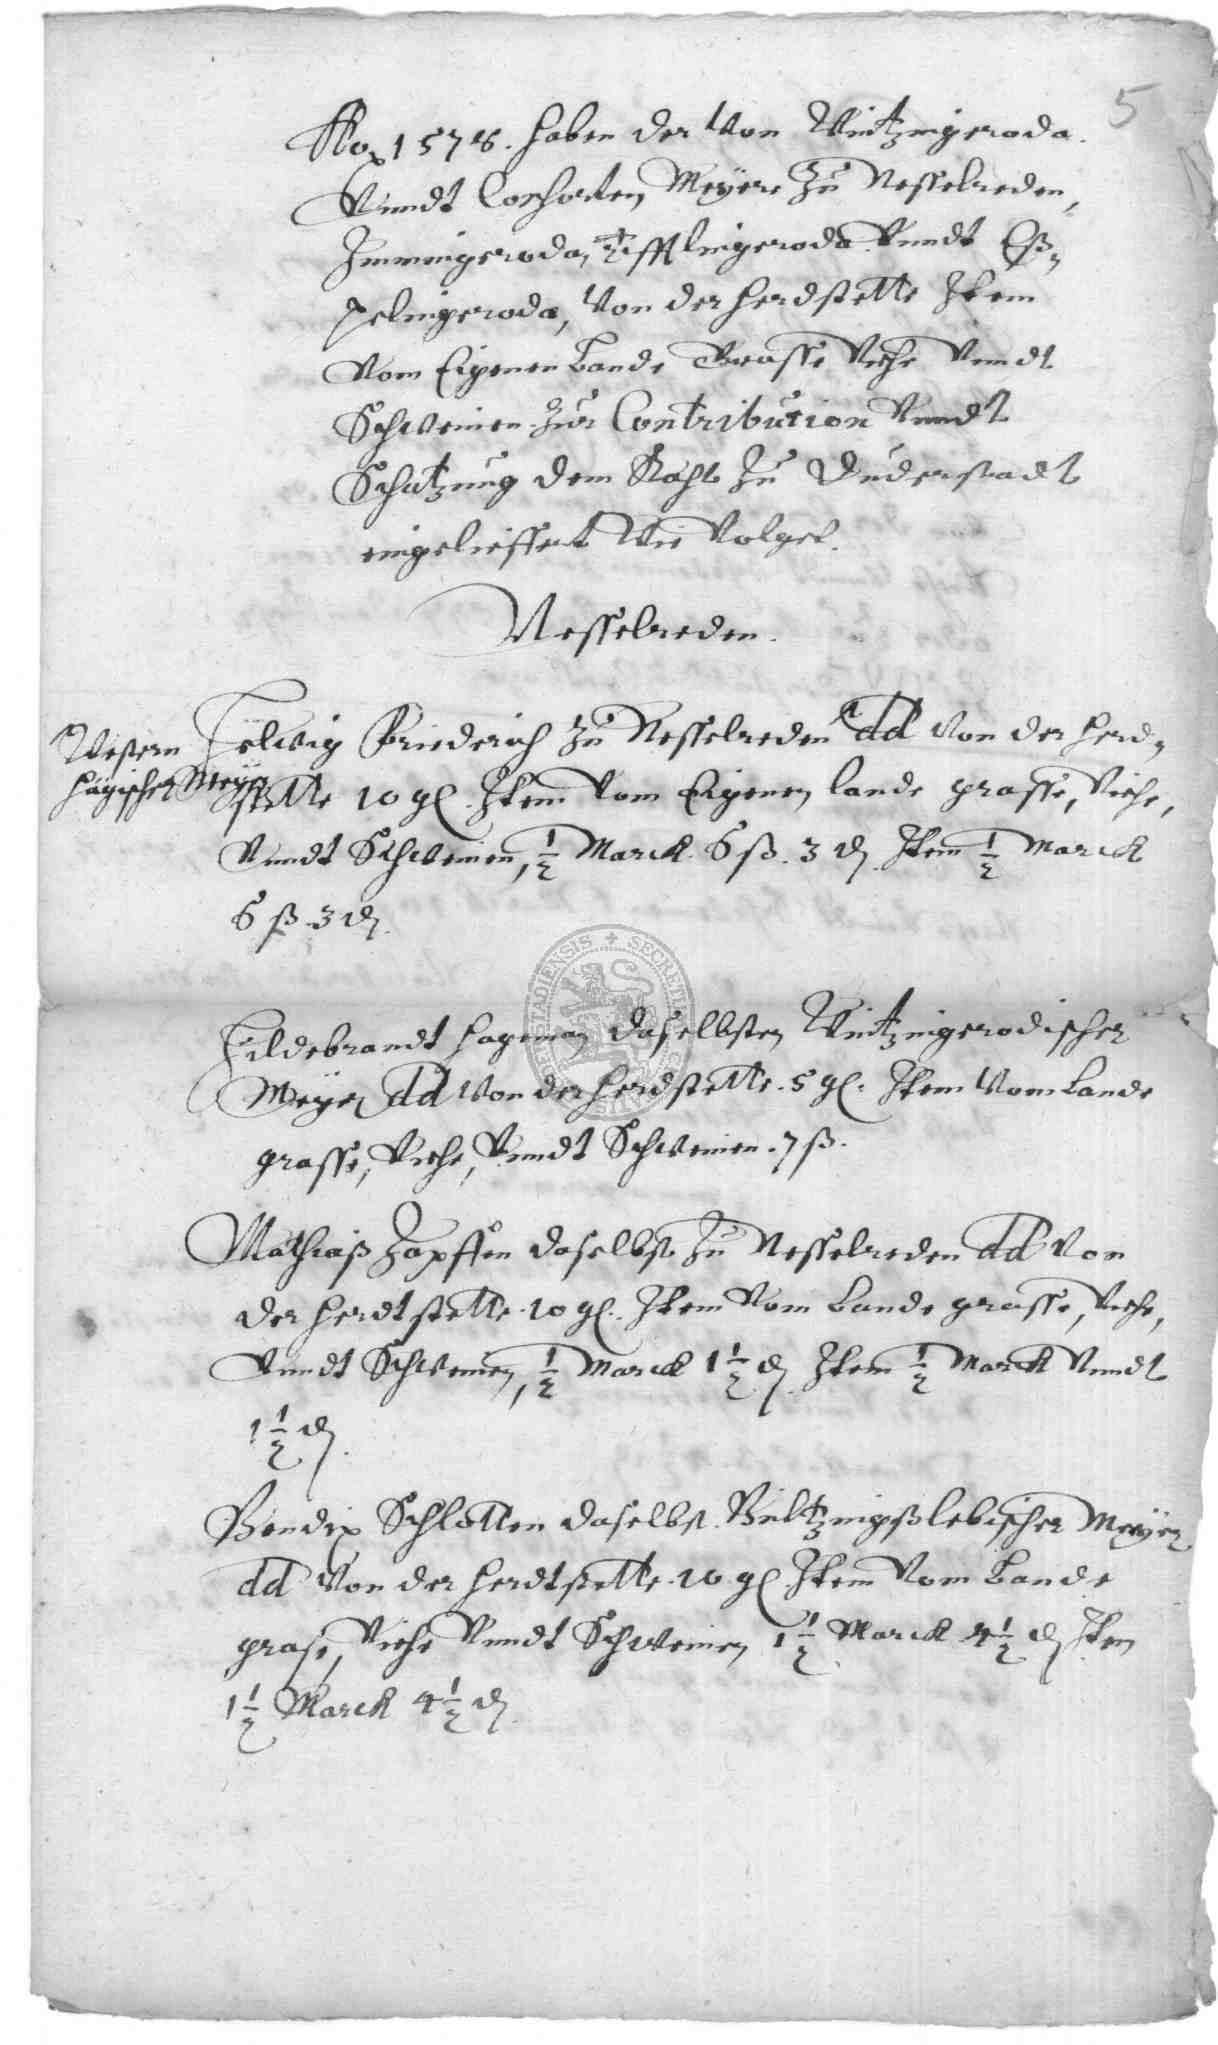 5
Ao 1576. haben der Von Wintzingeroda
Vnndt Consorten Meyere Zu Nesselreden,
Immingeroda, Tifftlingeroda Vnndt Eß-
pelingeroda, Von der herdstette Item
Vom Eigenen Lande Grasse Viehe Vnndt
Schweinen Zur Contribution Vnndt
Schatzung dem Raht Zu Duderstadt
eingelieffert Wie Volget.
Nesselreden.
Western
hagischer Meyer
Helwig Friederich Zu Nesselreden dd Von der herd-
stette 10 gl. Item Vom Eigenen lande grasse, Viehe,
Vnndt Schweinen, 1/2 Marck 6 ß. 3 ₰. Item 1/2 Marck
6 ß 3 ₰.
Hildebrandt Hageman daselbsten Wintzingerodischer
Meyer dd Von der herdstette 5 gl. Item Vom Lande
grasse, Viehe, Vnndt Schweinen 7 ß.
Mathiaß Zapffen daselbst Zu Nesselreden dd Von
der herdtstette 10 gl. Item Vom Lande grasse, Viehe,
Vnndt Schweinen, 1/2 Marck 1 1/2 ₰. Item 1/2 Marck Vnndt
1 1/2 ₰.
Bendix Schlotten daselbst Bultzingßlebischer Meyer
dd Von der herdtstette 10 gl Item Vom Lande
grase, Viehe Vnndt Schweinen 1 1/2 Marck 4 1/2 ₰ Item
1 1/2 Marck 4 1/2 ₰.